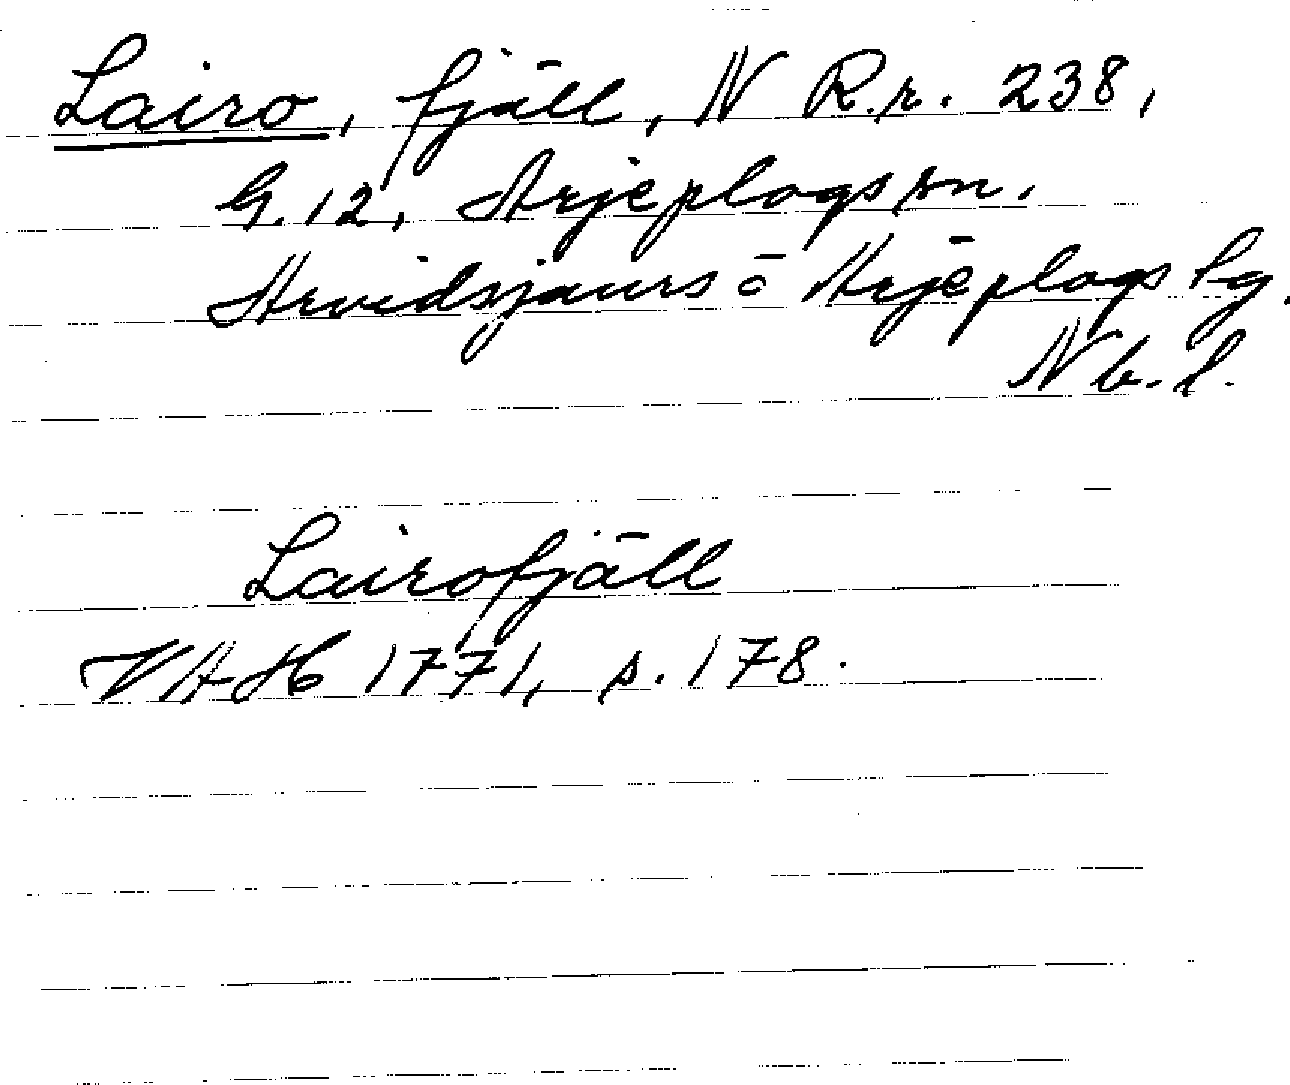 Lairo, fjäll, N R.r. 238,
G.12, Arjeplogs sn.
Arvidsjaurs o Arjeplogs lg.
Nb.l.
Lairofjäll
VAH 1771, s. 178.